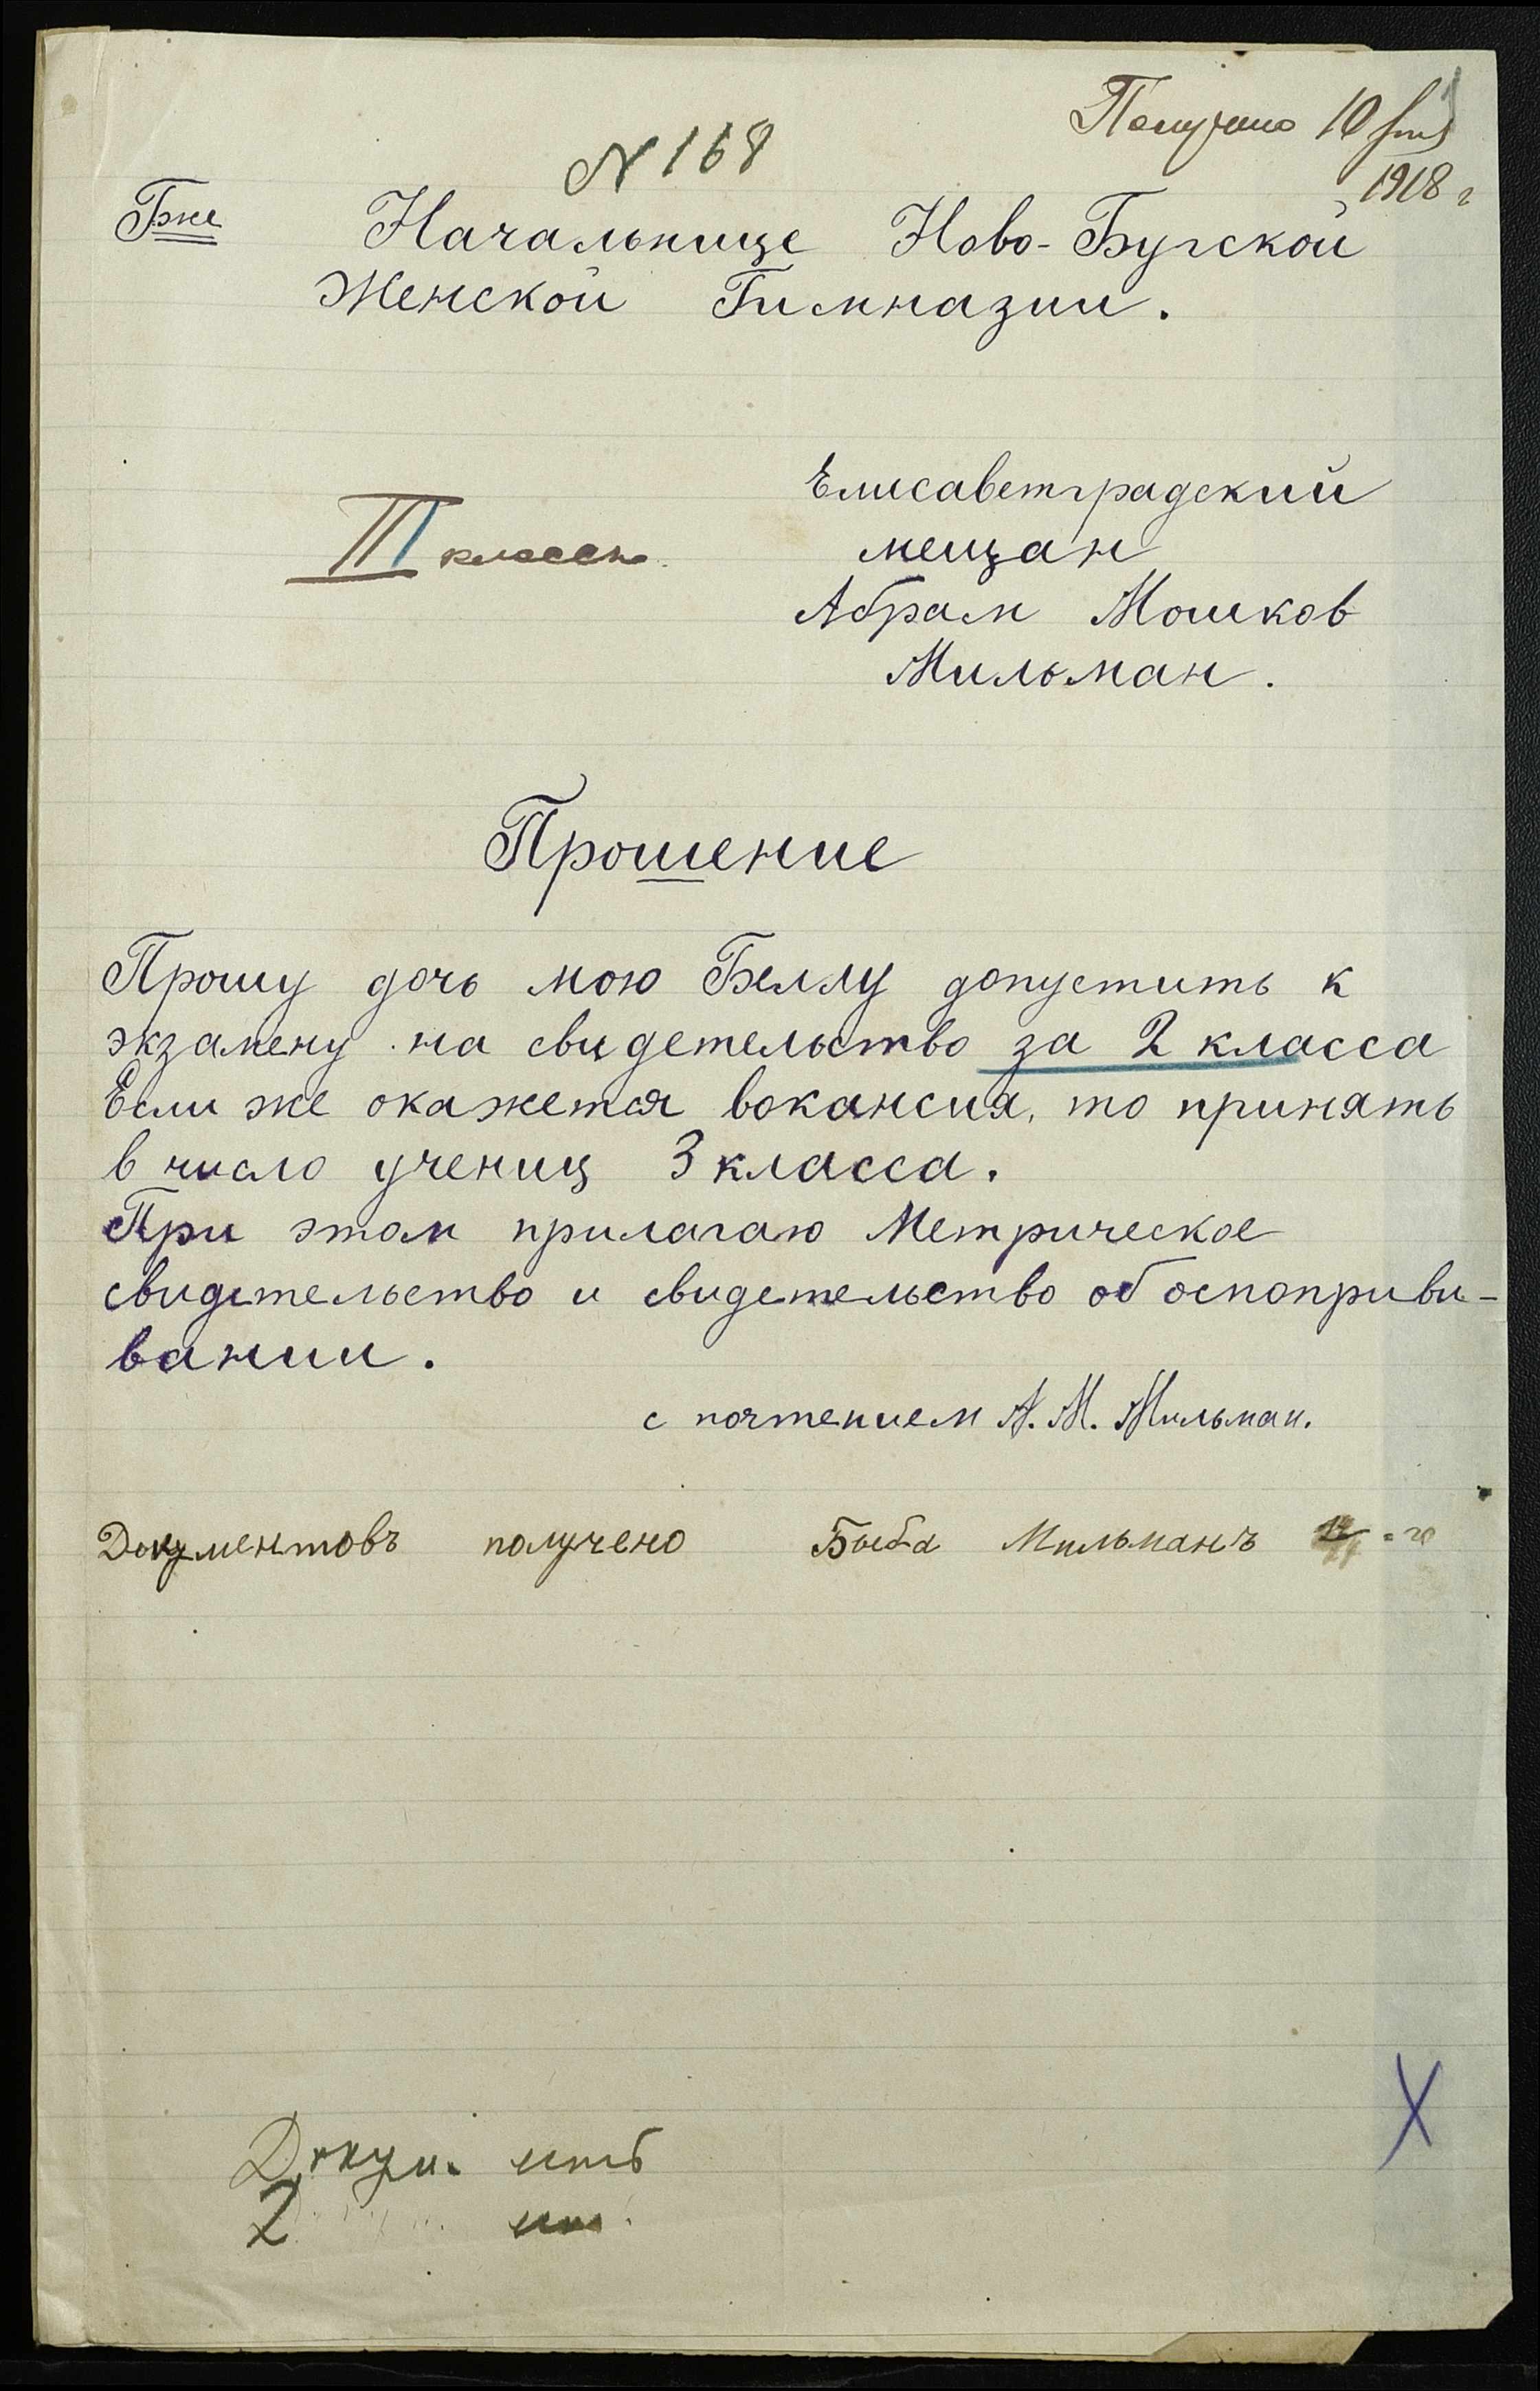 Получено 10
1918 г
N 168
Гже Начальнице Ново-Бугской
Женской Гимназии.
Елисаветградский
III классъ.
мещан
Абрам Мошков
Мильман.
Прошение
Прошу дочь мою Беллу допустить к
экзамену на свидетельство за 2 класса
Если же окажется вокансия, то принять
в число учениц 3 класса.
При этом прилагаю Метрическое
свидетельство и свидетельство об оспоприви-
вании.
с почтением А. М. Мильман.
Документовъ получено Бейба Мильманъ
Докум.
2
X